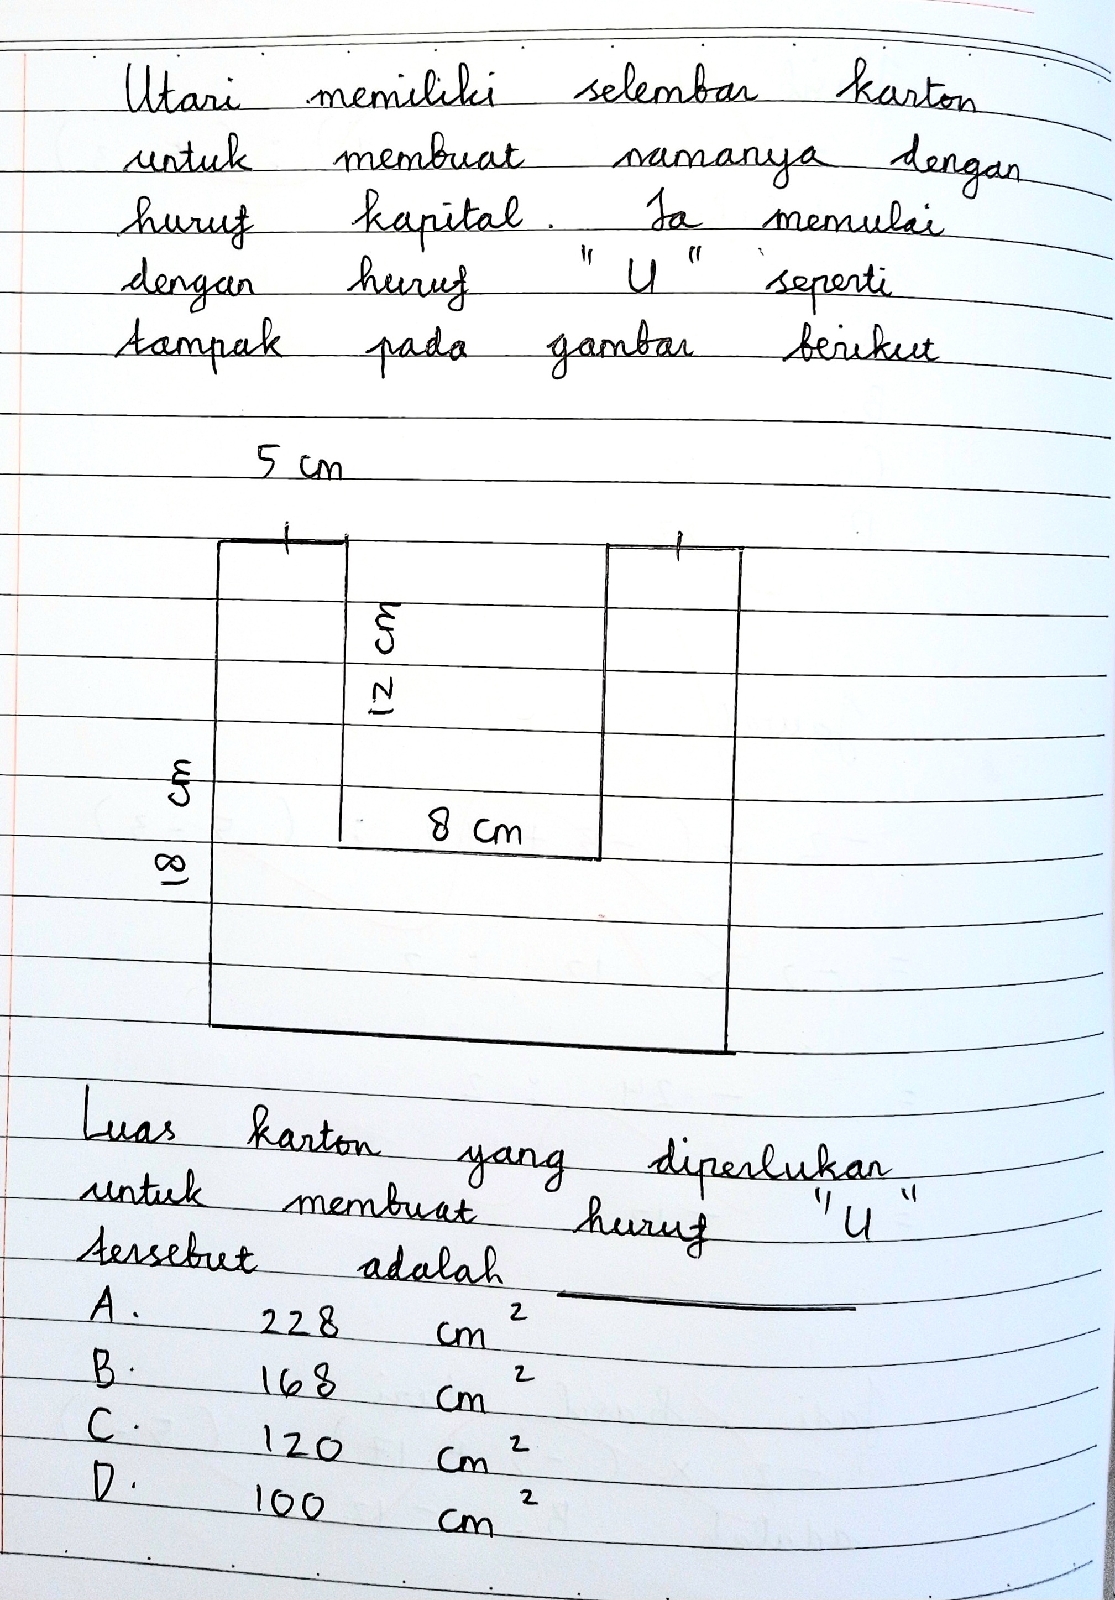 Utari memiliki selembar karton
untuk membuat namanya dengan
huruf kapital. Ia memulai
dengan huruf "U" seperti
tampak pada gambar berikut
5 cm
12 cm
18 cm
8 cm
Luas karton yang diperlukan
untuk membuat huruf "U"
tersebut adalah ______
A. 228 cm²
B. 168 cm²
C. 120 cm²
D. 100 cm²